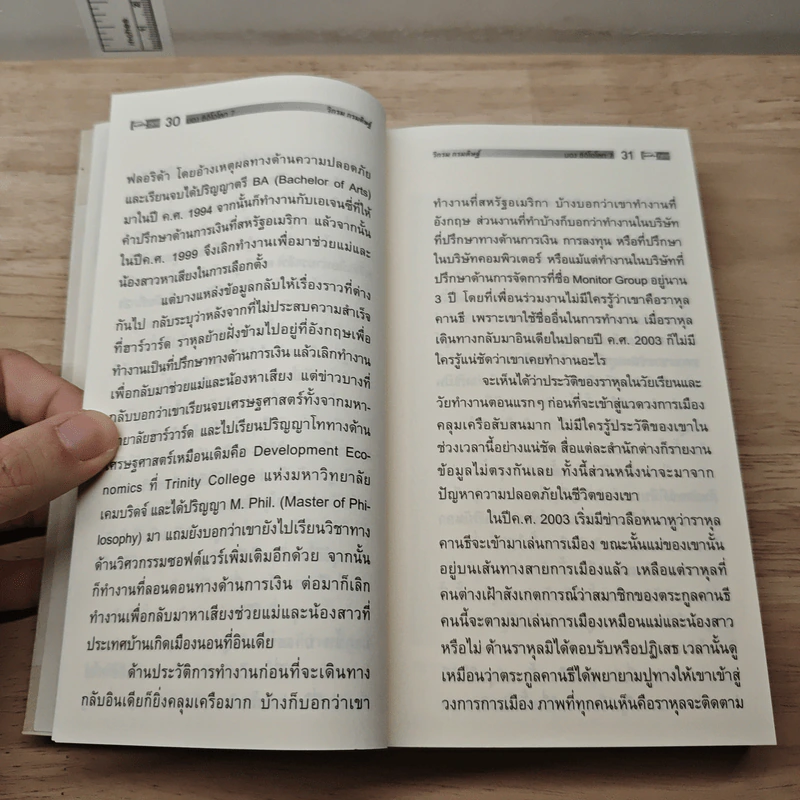 30
วิกรม กรมดิษฐ์
ฟลอริด้า โดยอ้างเหตุผลทางด้านความปลอดภัย
และเรียนจบได้ปริญญาตรี BA (Bachelor of Arts)
มาในปี ค.ศ. 1994 จากนั้นก็ทำงานกับเอเจนซี่ที่ให้
คำปรึกษาด้านการเงินที่สหรัฐอเมริกา แล้วจากนั้น
ในปีค.ศ. 1999 จึงเลิกทำงานเพื่อมาช่วยแม่และ
น้องสาวหาเสียงในการเลือกตั้ง
แต่บางแหล่งข้อมูลกลับให้เรื่องราวที่ต่าง
กันไป กลับระบุว่าหลังจากที่ไม่ประสบความสำเร็จ
ที่ฮาร์วาร์ด ราหุลย้ายฝั่งข้ามไปอยู่ที่อังกฤษเพื่อ
ทำงานเป็นที่ปรึกษาทางด้านการเงิน แล้วเลิกทำงาน
เพื่อกลับมาช่วยแม่และน้องหาเสียง แต่ข่าวบางที่
กลับบอกว่าเขาเรียนจบเศรษฐศาสตร์ทั้งจากมหา-
วิทยาลัยฮาร์วาร์ด และไปเรียนปริญญาโททางด้าน
เศรษฐศาสตร์เหมือนเดิมคือ Development Eco-
nomics ที่ Trinity College แห่งมหาวิทยาลัย
เคมบริดจ์ และได้ปริญญา M. Phil. (Master of Phi-
losophy) มา แถมยังบอกว่าเขายังไปเรียนวิชาทาง
ด้านวิศวกรรมซอฟต์แวร์เพิ่มเติมอีกด้วย จากนั้น
ก็ทำงานที่ลอนดอนทางด้านการเงิน ต่อมาก็เลิก
ทำงานเพื่อกลับมาหาเสียงช่วยแม่และน้องสาวที่
ประเทศบ้านเกิดเมืองนอนที่อินเดีย
ด้านประวัติการทำงานก่อนที่จะเดินทาง
กลับอินเดียก็ยิ่งคลุมเครือมาก บ้างก็บอกว่าเขา
วิกรม กรมดิษฐ์
31
ทำงานที่สหรัฐอเมริกา บ้างบอกว่าเขาทำงานที่
อังกฤษ ส่วนงานที่ทำบ้างก็บอกว่าทำงานในบริษัท
ที่ปรึกษาทางด้านการเงิน การลงทุน หรือที่ปรึกษา
ในบริษัทคอมพิวเตอร์ หรือแม้แต่ทำงานในบริษัทที่
ปรึกษาด้านการจัดการที่ชื่อ Monitor Group อยู่นาน
3 ปี โดยที่เพื่อนร่วมงานไม่มีใครรู้ว่าเขาคือราหุล
คานธี เพราะเขาใช้ชื่ออื่นในการทำงาน เมื่อราหุล
เดินทางกลับมาอินเดียในปลายปี ค.ศ. 2003 ก็ไม่มี
ใครรู้แน่ชัดว่าเขาเคยทำงานอะไร
จะเห็นได้ว่าประวัติของราหุลในวัยเรียนและ
วัยทำงานตอนแรกๆ ก่อนที่จะเข้าสู่แวดวงการเมือง
คลุมเครือสับสนมาก ไม่มีใครรู้ประวัติของเขาใน
ช่วงเวลานี้อย่างแน่ชัด สื่อแต่ละสำนักต่างก็รายงาน
ข้อมูลไม่ตรงกันเลย ทั้งนี้ส่วนหนึ่งน่าจะมาจาก
ปัญหาความปลอดภัยในชีวิตของเขา
ในปีค.ศ. 2003 เริ่มมีข่าวลือหนาหูว่าราหุล
คานธีจะเข้ามาเล่นการเมือง ขณะนั้นแม่ของเขานั้น
อยู่บนเส้นทางสายการเมืองแล้ว เหลือแต่ราหุลที่
คนต่างเฝ้าสังเกตการณ์ว่าสมาชิกของตระกูลคานธี
คนนี้จะตามมาเล่นการเมืองเหมือนแม่และน้องสาว
หรือไม่ ด้านราหุลมิได้ตอบรับหรือปฏิเสธ เวลานั้นดู
เหมือนว่าตระกูลคานธีได้พยายามปูทางให้เขาเข้าสู่
วงการการเมือง ภาพที่ทุกคนเห็นคือราหุลจะติดตาม